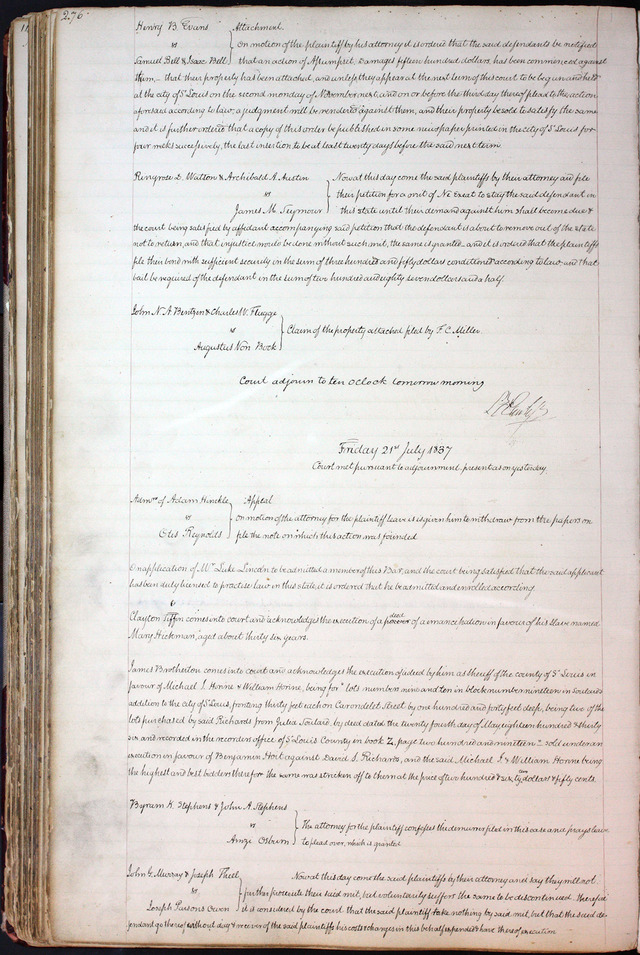 276
Henry B. Evans
vs
Samuel Bell & Isaac Bell
Attachment.
on motion of the plaintiff by his attorney it is ordered that the said defendants be notified
that an action of Assumpsit, Damages fifteen hundred dollars has been commenced against
them, – that their property has been attached, and unless they appear at the next term of this court to be begun and held
at the city of St Louis on the second monday of November next, and on or before the third day thereof plead to the action
aforesaid according to law, a judgment will be rendered against them, and their property be sold to satisfy the same
and it is further ordered that a copy of this order be published in some newspaper printed in the city of St Louis for
four weeks successively, the last insertion to be at least twenty days before the said next term.
D. Watson & Archibald A. Austin
vs
James M. Seymour
Now at this day come the said plaintiffs by their attorney and file
their petition for a writ of Ne Exeat to stay the said defendant in
this state until their demand against him shall become due &
the court being satisfied by affidavit accompanying said petition that the defendant is about to remove out of the state
not to return, and that injustice would be done without such writ, the same is granted – and it is ordered that the plaintiffs
file their bond with sufficient security in the sum of three hundred and fifty dollars conditioned according to law, and that
bail be required of the defendant in the sum of two hundred and eighty seven dollars and a half.
John N. A. Bentzen & Charles W. Flugge
vs
Augustus Von Bock
Claim of the property attached filed by F. C. Miller
Court adjourn to ten oclock tomorrow morning
Friday 21st July 1837
Court met pursuant to adjournment. present as on yesterday
Admrs of Adam Hinkle
vs
Otis Reynolds
Appeal
on motion of the attorney for the plaintiff leave is is given him to withdraw from the papers on
file the note on which this action was founded
On application of Mr Luke Lincoln to be admitted a member of this Bar, and the court being satisfied that the said applicant
has been duly licensed to practise law in this state, it is ordered that he be admitted and enrolled according
Clayton Tiffin comes into court and acknowledges the execution of a deed of emancipation in favour of his slave named
Mary Hickman, aged about thirty six years.
James Brotherton comes into court and acknowledges the execution of a deed by him as sheriff of the county of St Louis in
favour of Michael J. Horine & William Horine, being for lots number nine and ten in block number nineteen in Soulards
addition to the city of St Louis, fronting thirty feet each on Carondelet Street by one hundred and forty feet deep, being two of the
lots purchased by said Richards from Julia Soulard. by deed dated the twenty fourth day of May eighteen hundred & thirty
six and recorded in the recorders office of St Louis County in book Z, page two hundred and nineteen – sold under an
execution in favour of Benjamin Hoit against David S. Richards, and the said Michael J. & William Horine being
the highest and best bidders therefor the same was stricken off to them at the price of two hundred & dollars & fifty cents.
Byram K. Stephens & John A. Stephens
vs
Amzi Osburn
The attorney for the plaintiff confesses the demurrer filed in this case and prays leave
to plead over, which is granted
John G. Murray & Joseph Theel
vs
Joseph Parsons Owen
Now at this day come the said plaintiffs by their attorney and say they will not
further prosecute their said suit, but voluntarily suffer the same to be discontinued. Therefore
it is considered by the court that the said plaintiff take nothing by said suit, but that the said de-
fendant go thereof without day & recover of the said plaintiffs his costs & charges in this behalf expended & have thereof execution